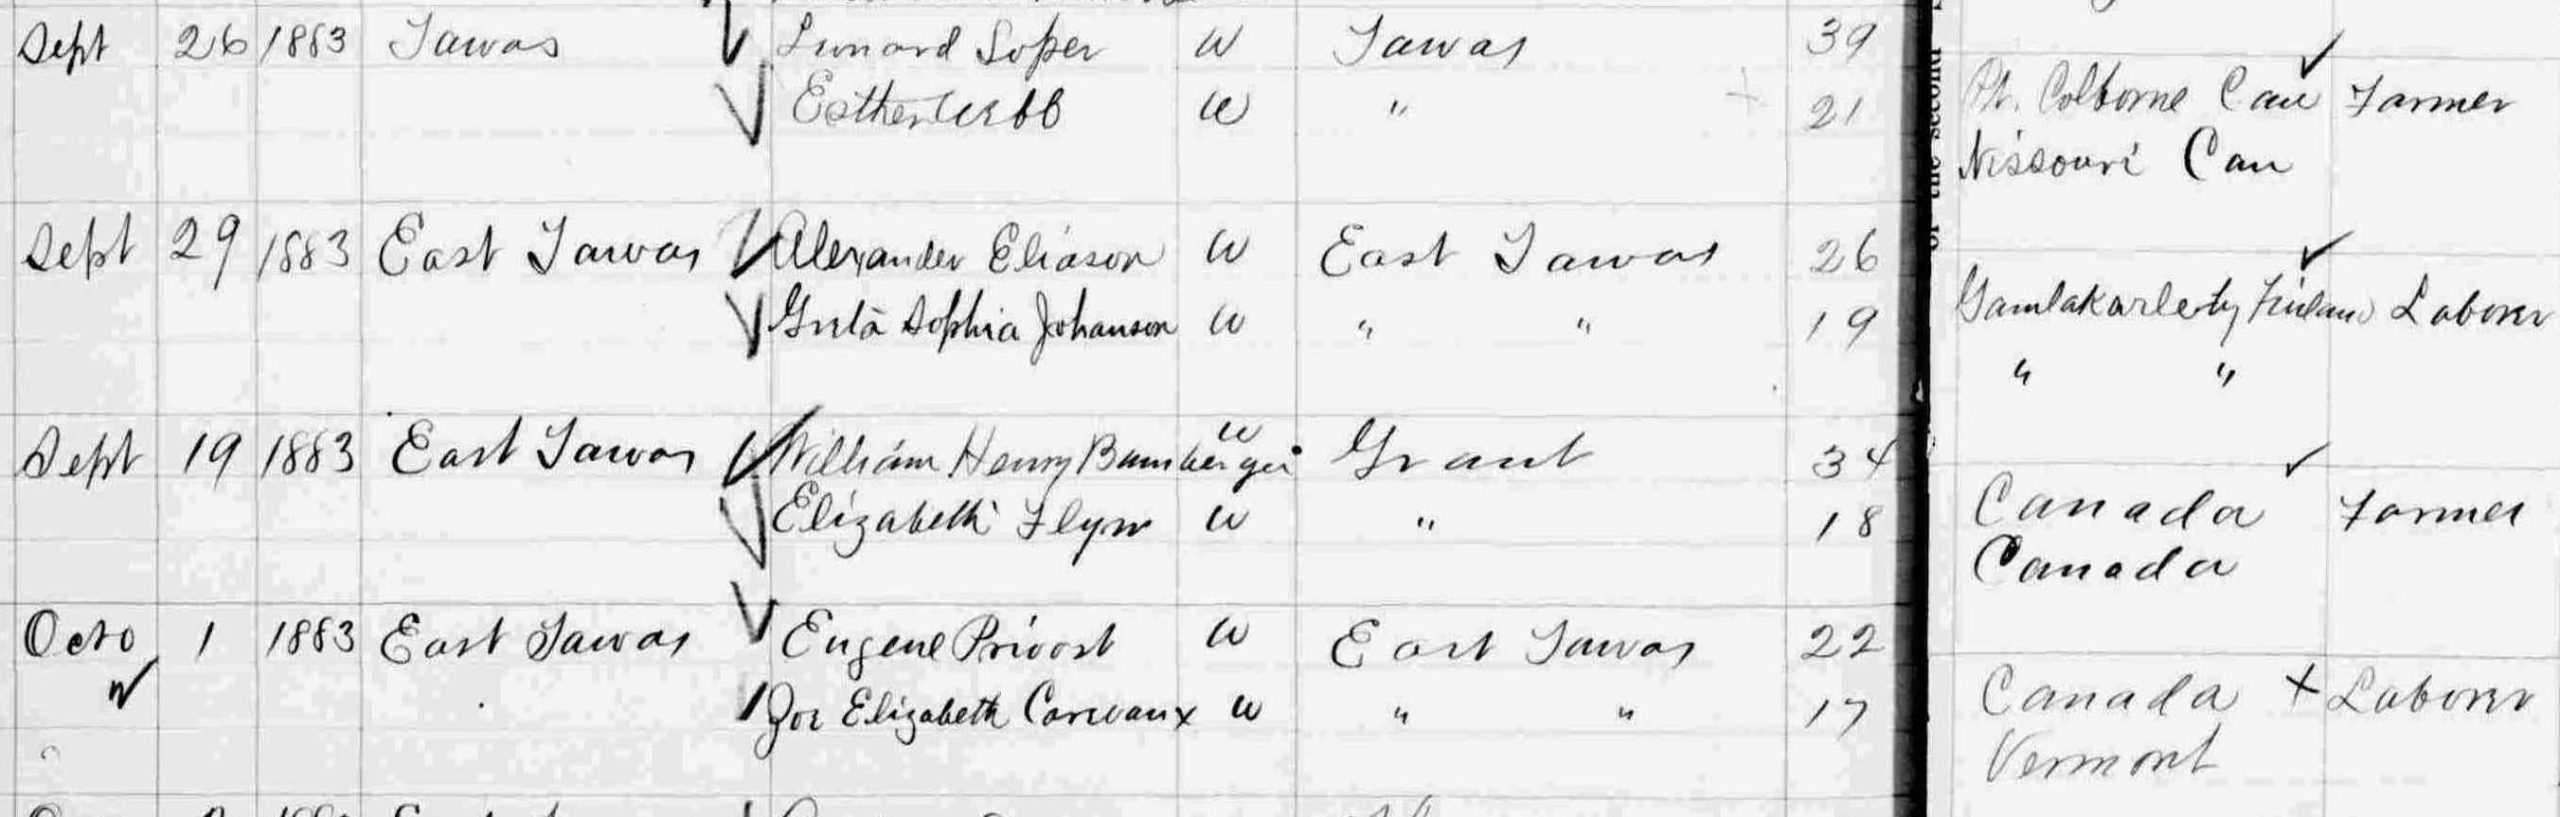 Sept 26 1883 Tawas Lunard Soper W Tawas 39
Esther Webb W " 21
Pt. Colborne Can Farmer
Nissouri Can
of the second
Sept 29 1883 East Tawas Alexander Eliason W East Tawas 26
Greta Sophia Johanson W " " 19
Gamlakarleby Finland Laborer
" "
Sept 19 1883 East Tawas William Henry Bamberger W Grant 34
Elizabeth Flynn W " 18
Canada Farmer
Canada
Octo 1 1883 East Tawas Eugene Privost W East Tawas 22
Zoe Elizabeth W " " 17
Canada + Laborer
Vermont